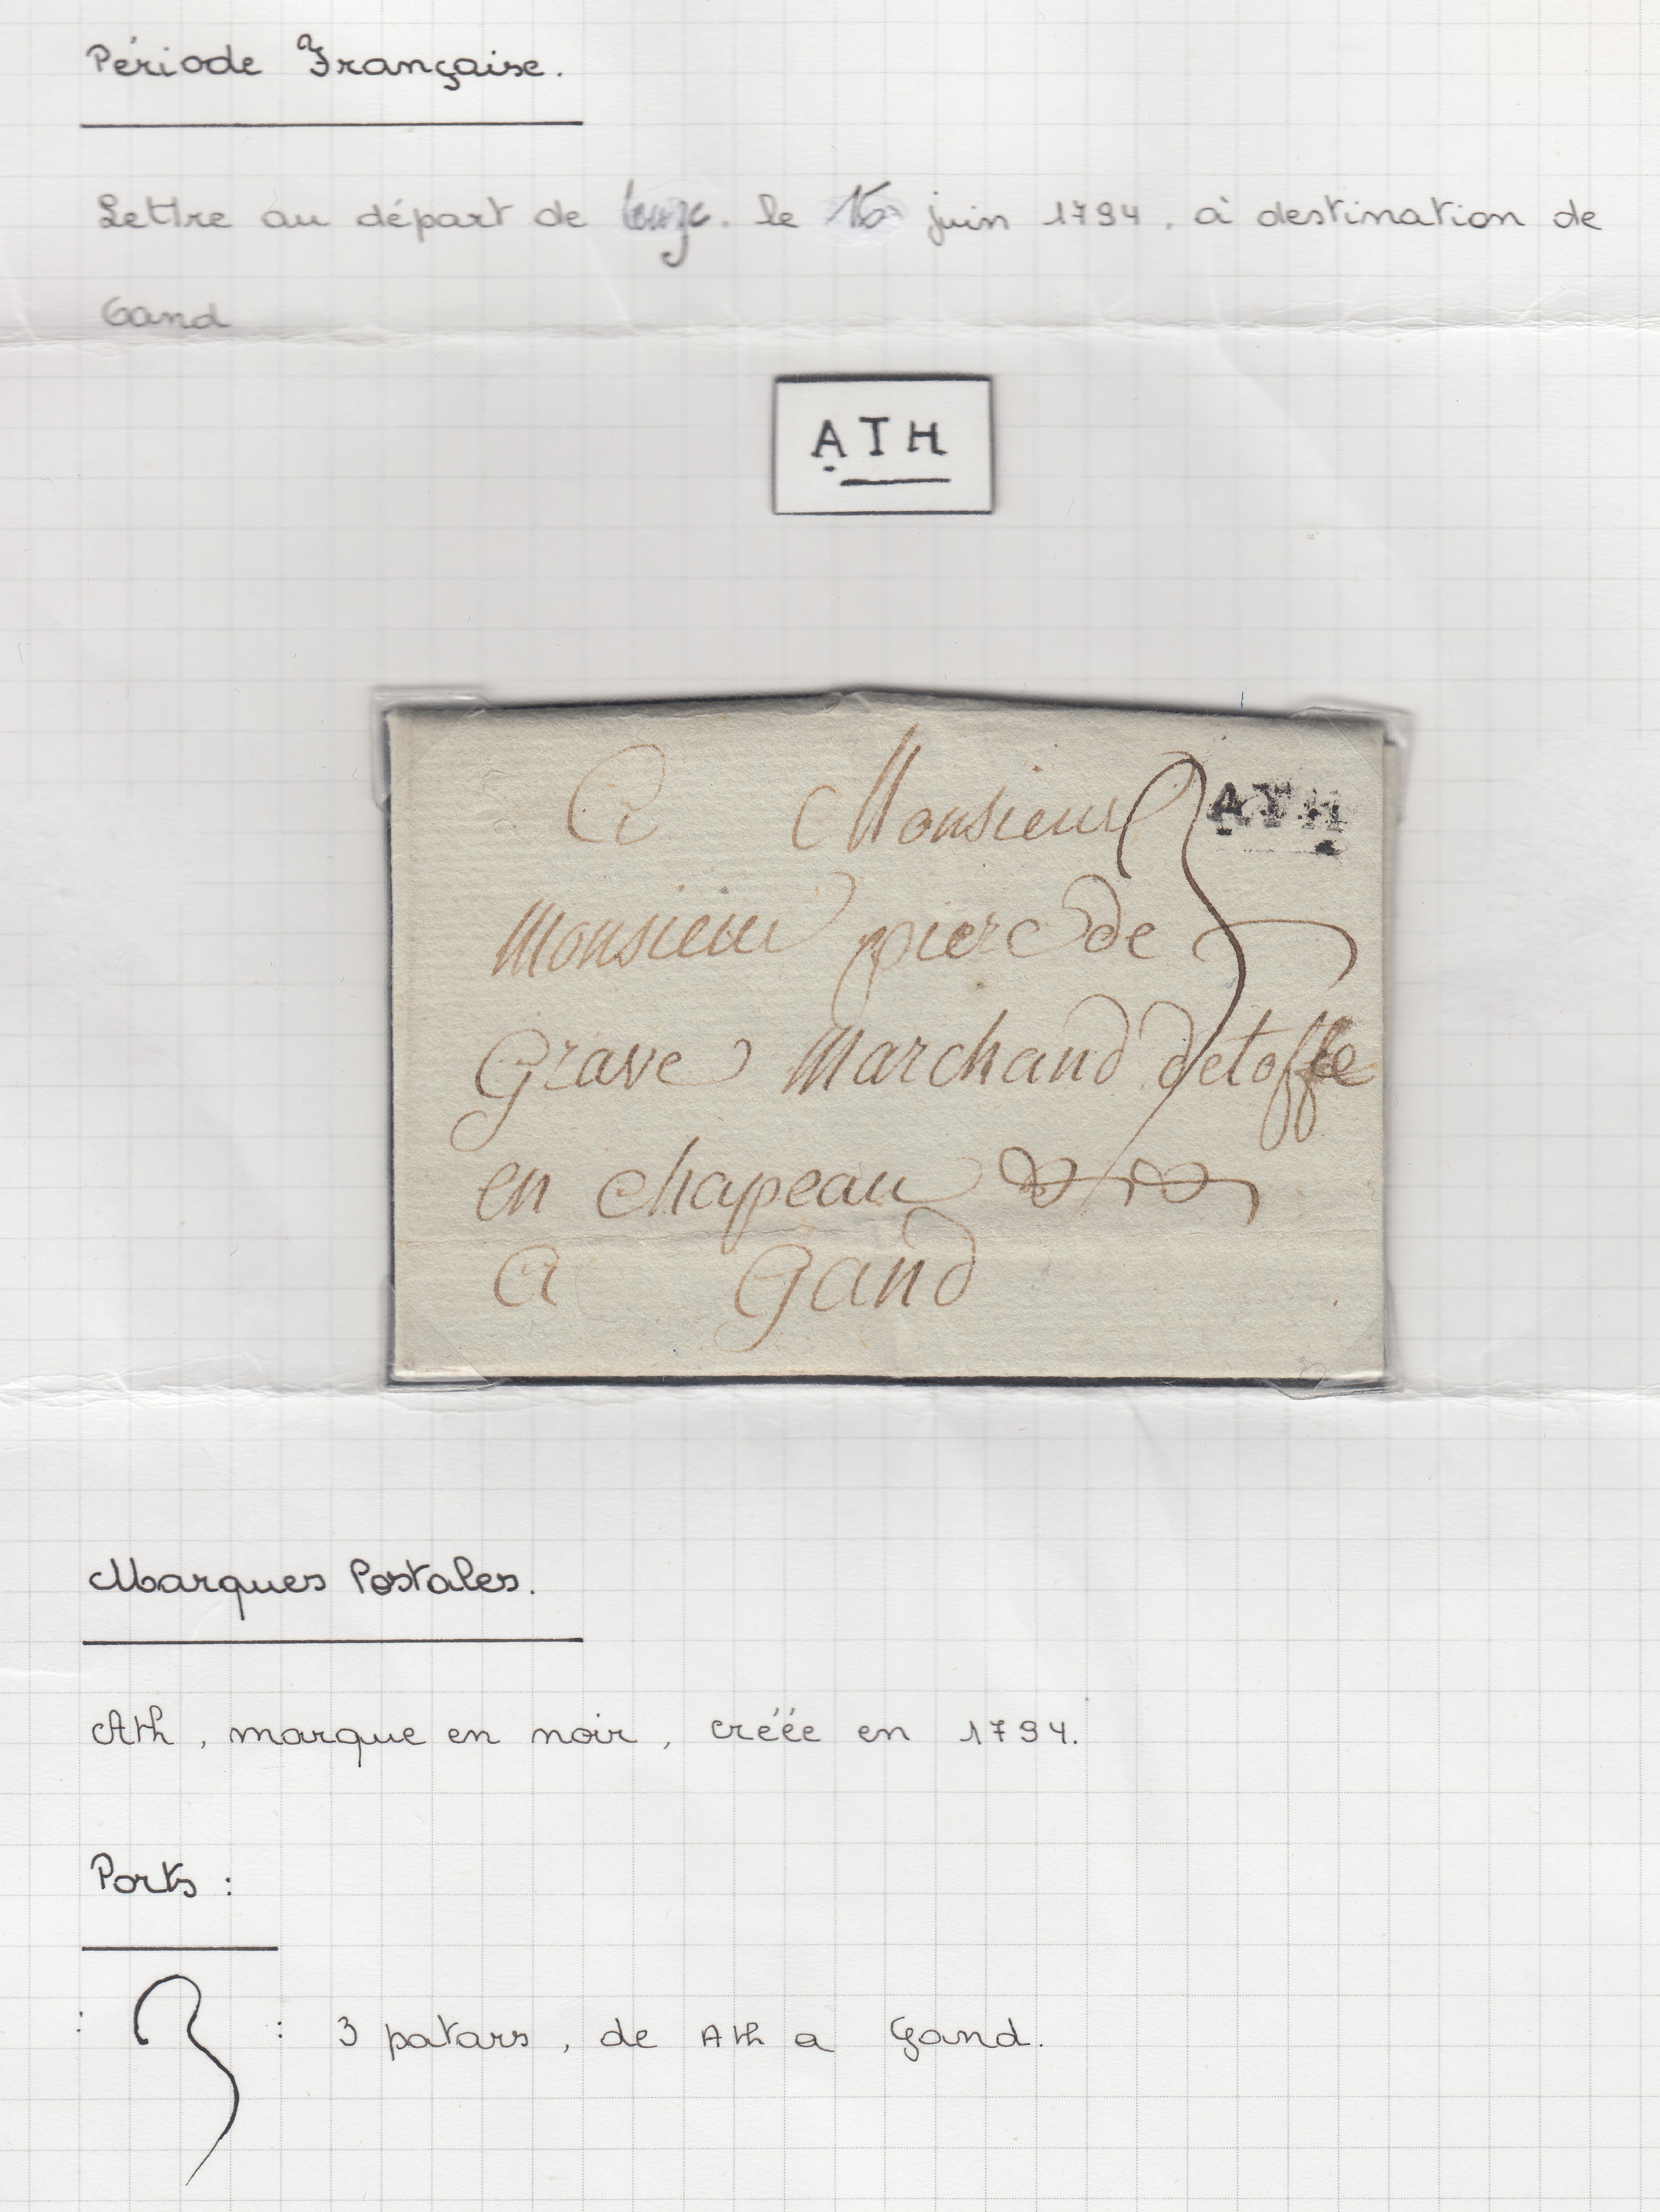 Période Française.
Lettre au départ de Leuze. le 16 juin 1794, à destination de
Gand
ATH
A Monsieur 3 ATH
Monsieur piere de
Grave Marchand detoffe
en chapeau
a Gand
Marques Postales.
Ath, marque en noir, créée en 1794.
Ports :
: 3 : 3 patars, de Ath a Gand.